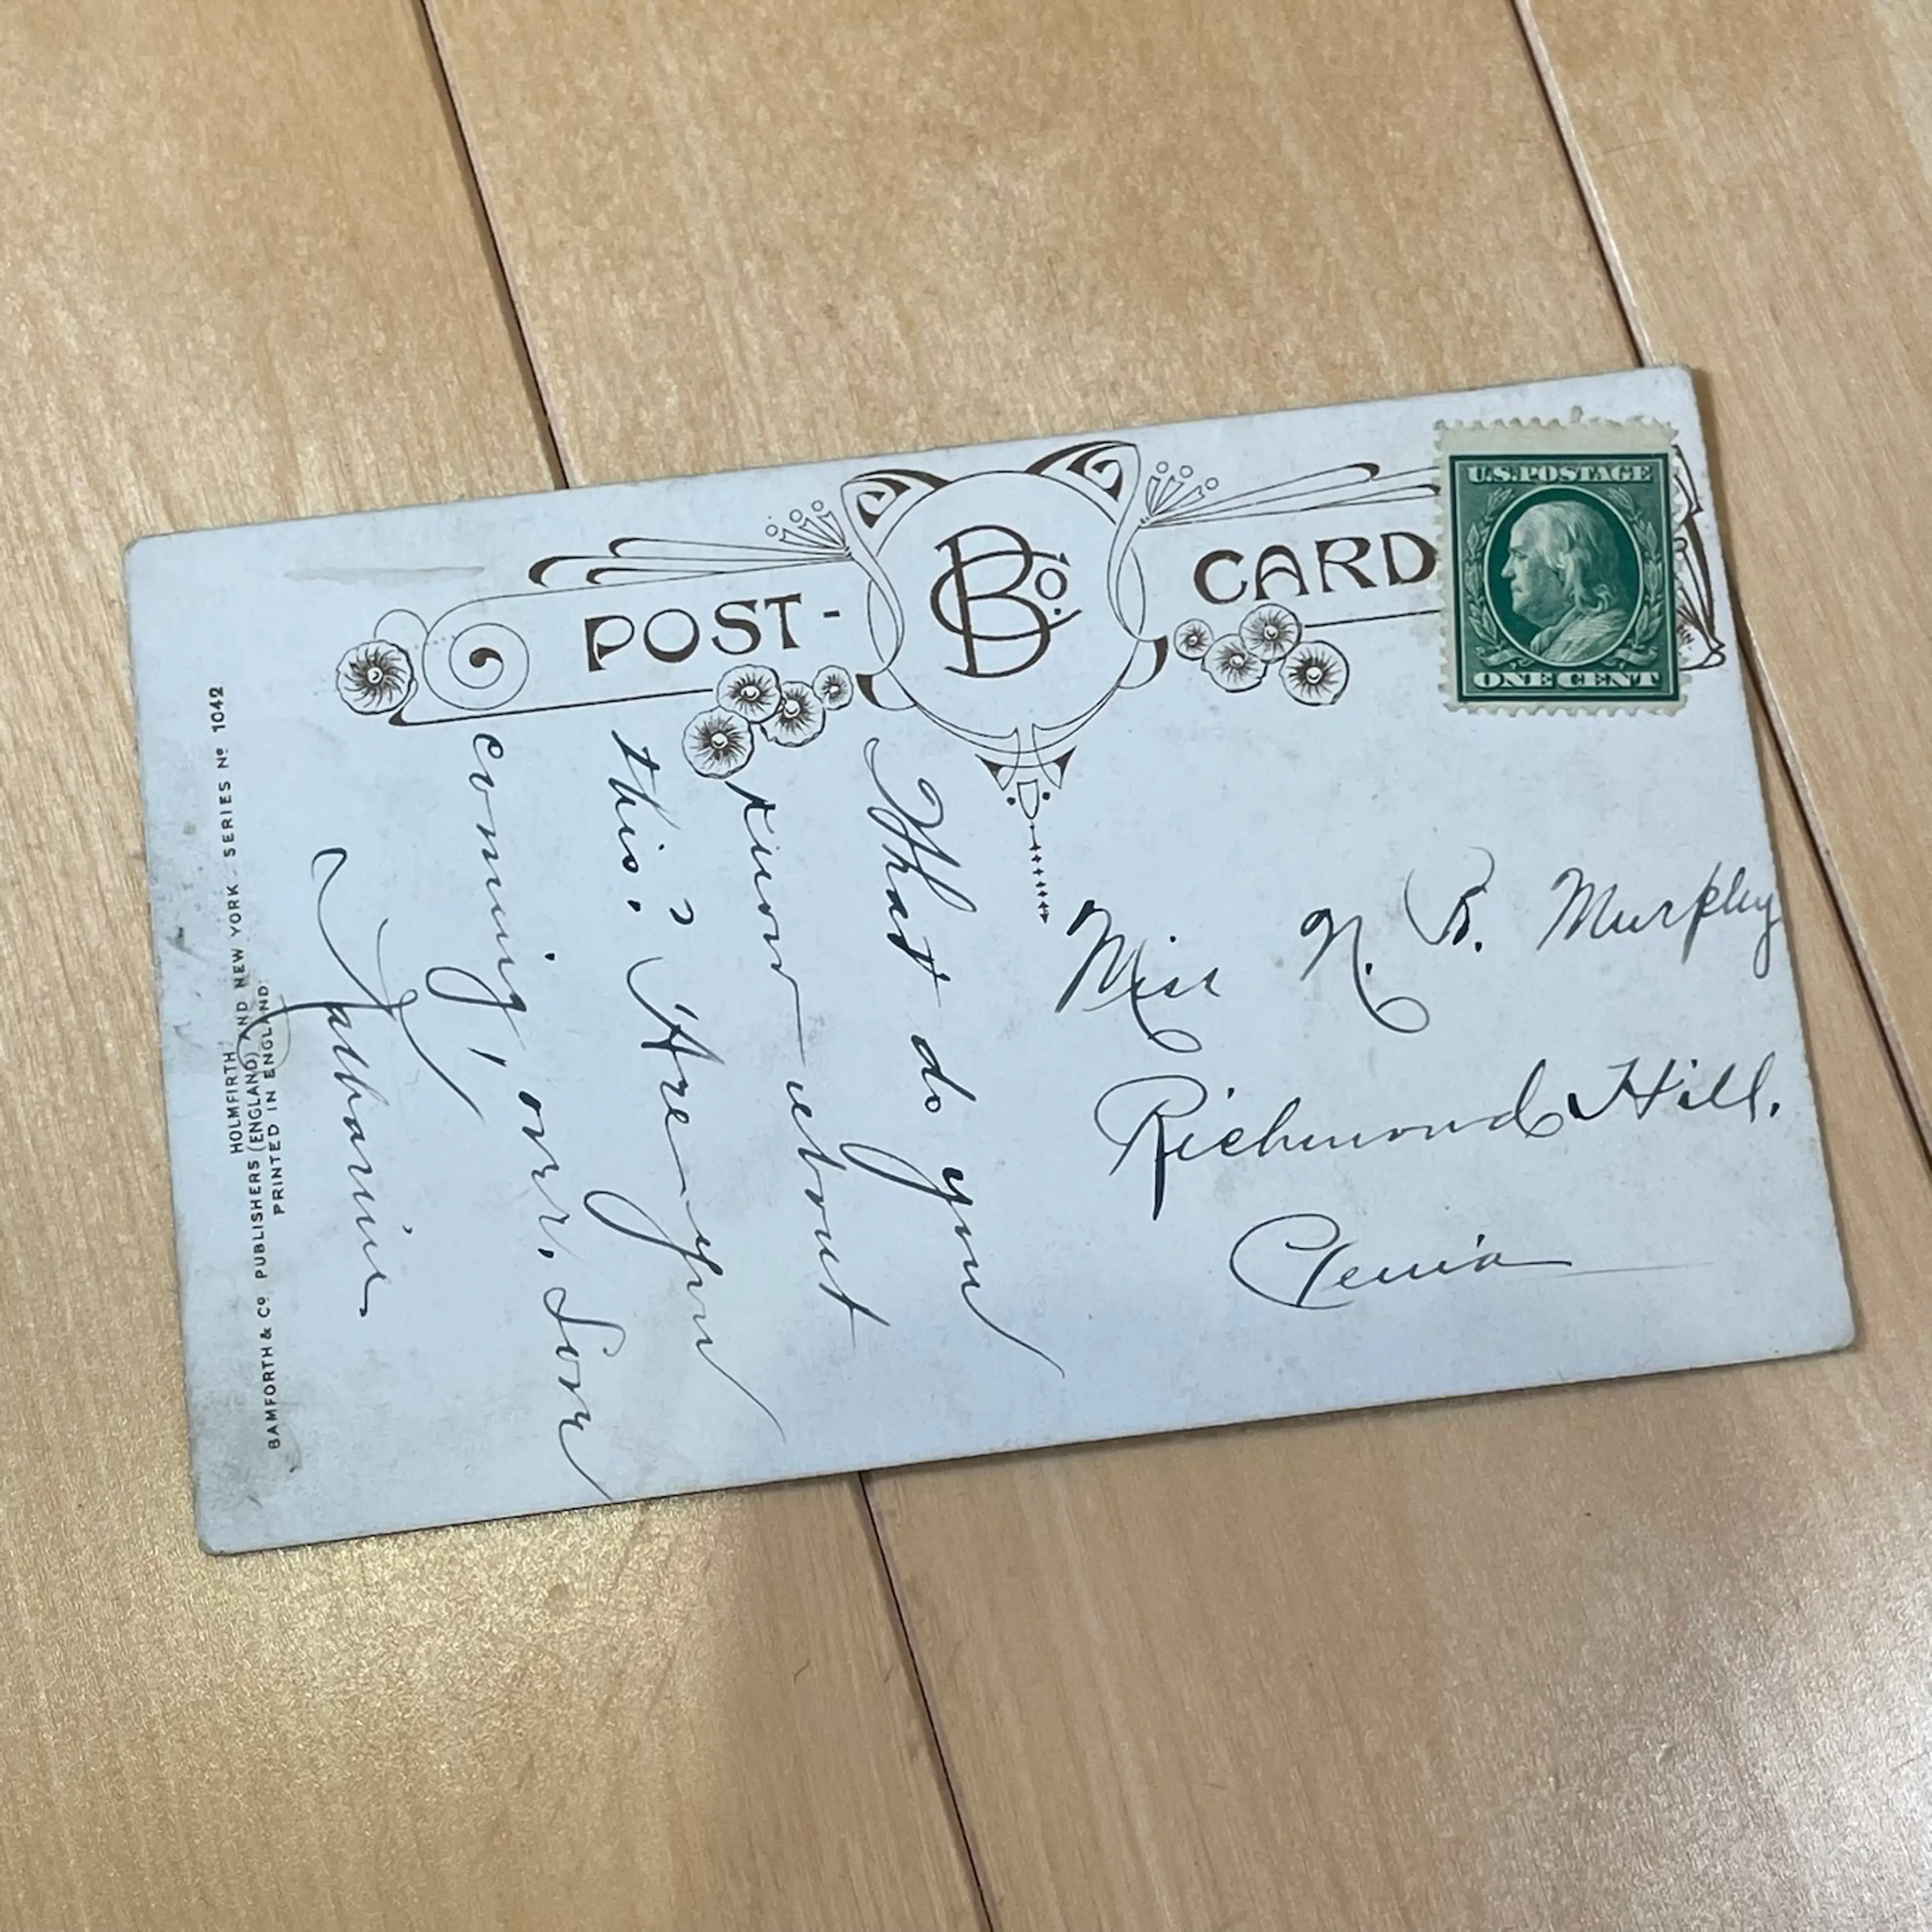 POST-
BCo.
CARD
U.S. POSTAGE
ONE CENT
What do you
know about
this? Are you
coming, over. Soon
Miss N. B. Murphy
Richmond Hill.
HOLMFIRTH
BAMFORTH & Co PUBLISHERS (ENGLAND) AND NEW YORK SERIES No 1042
PRINTED IN ENGLAND.